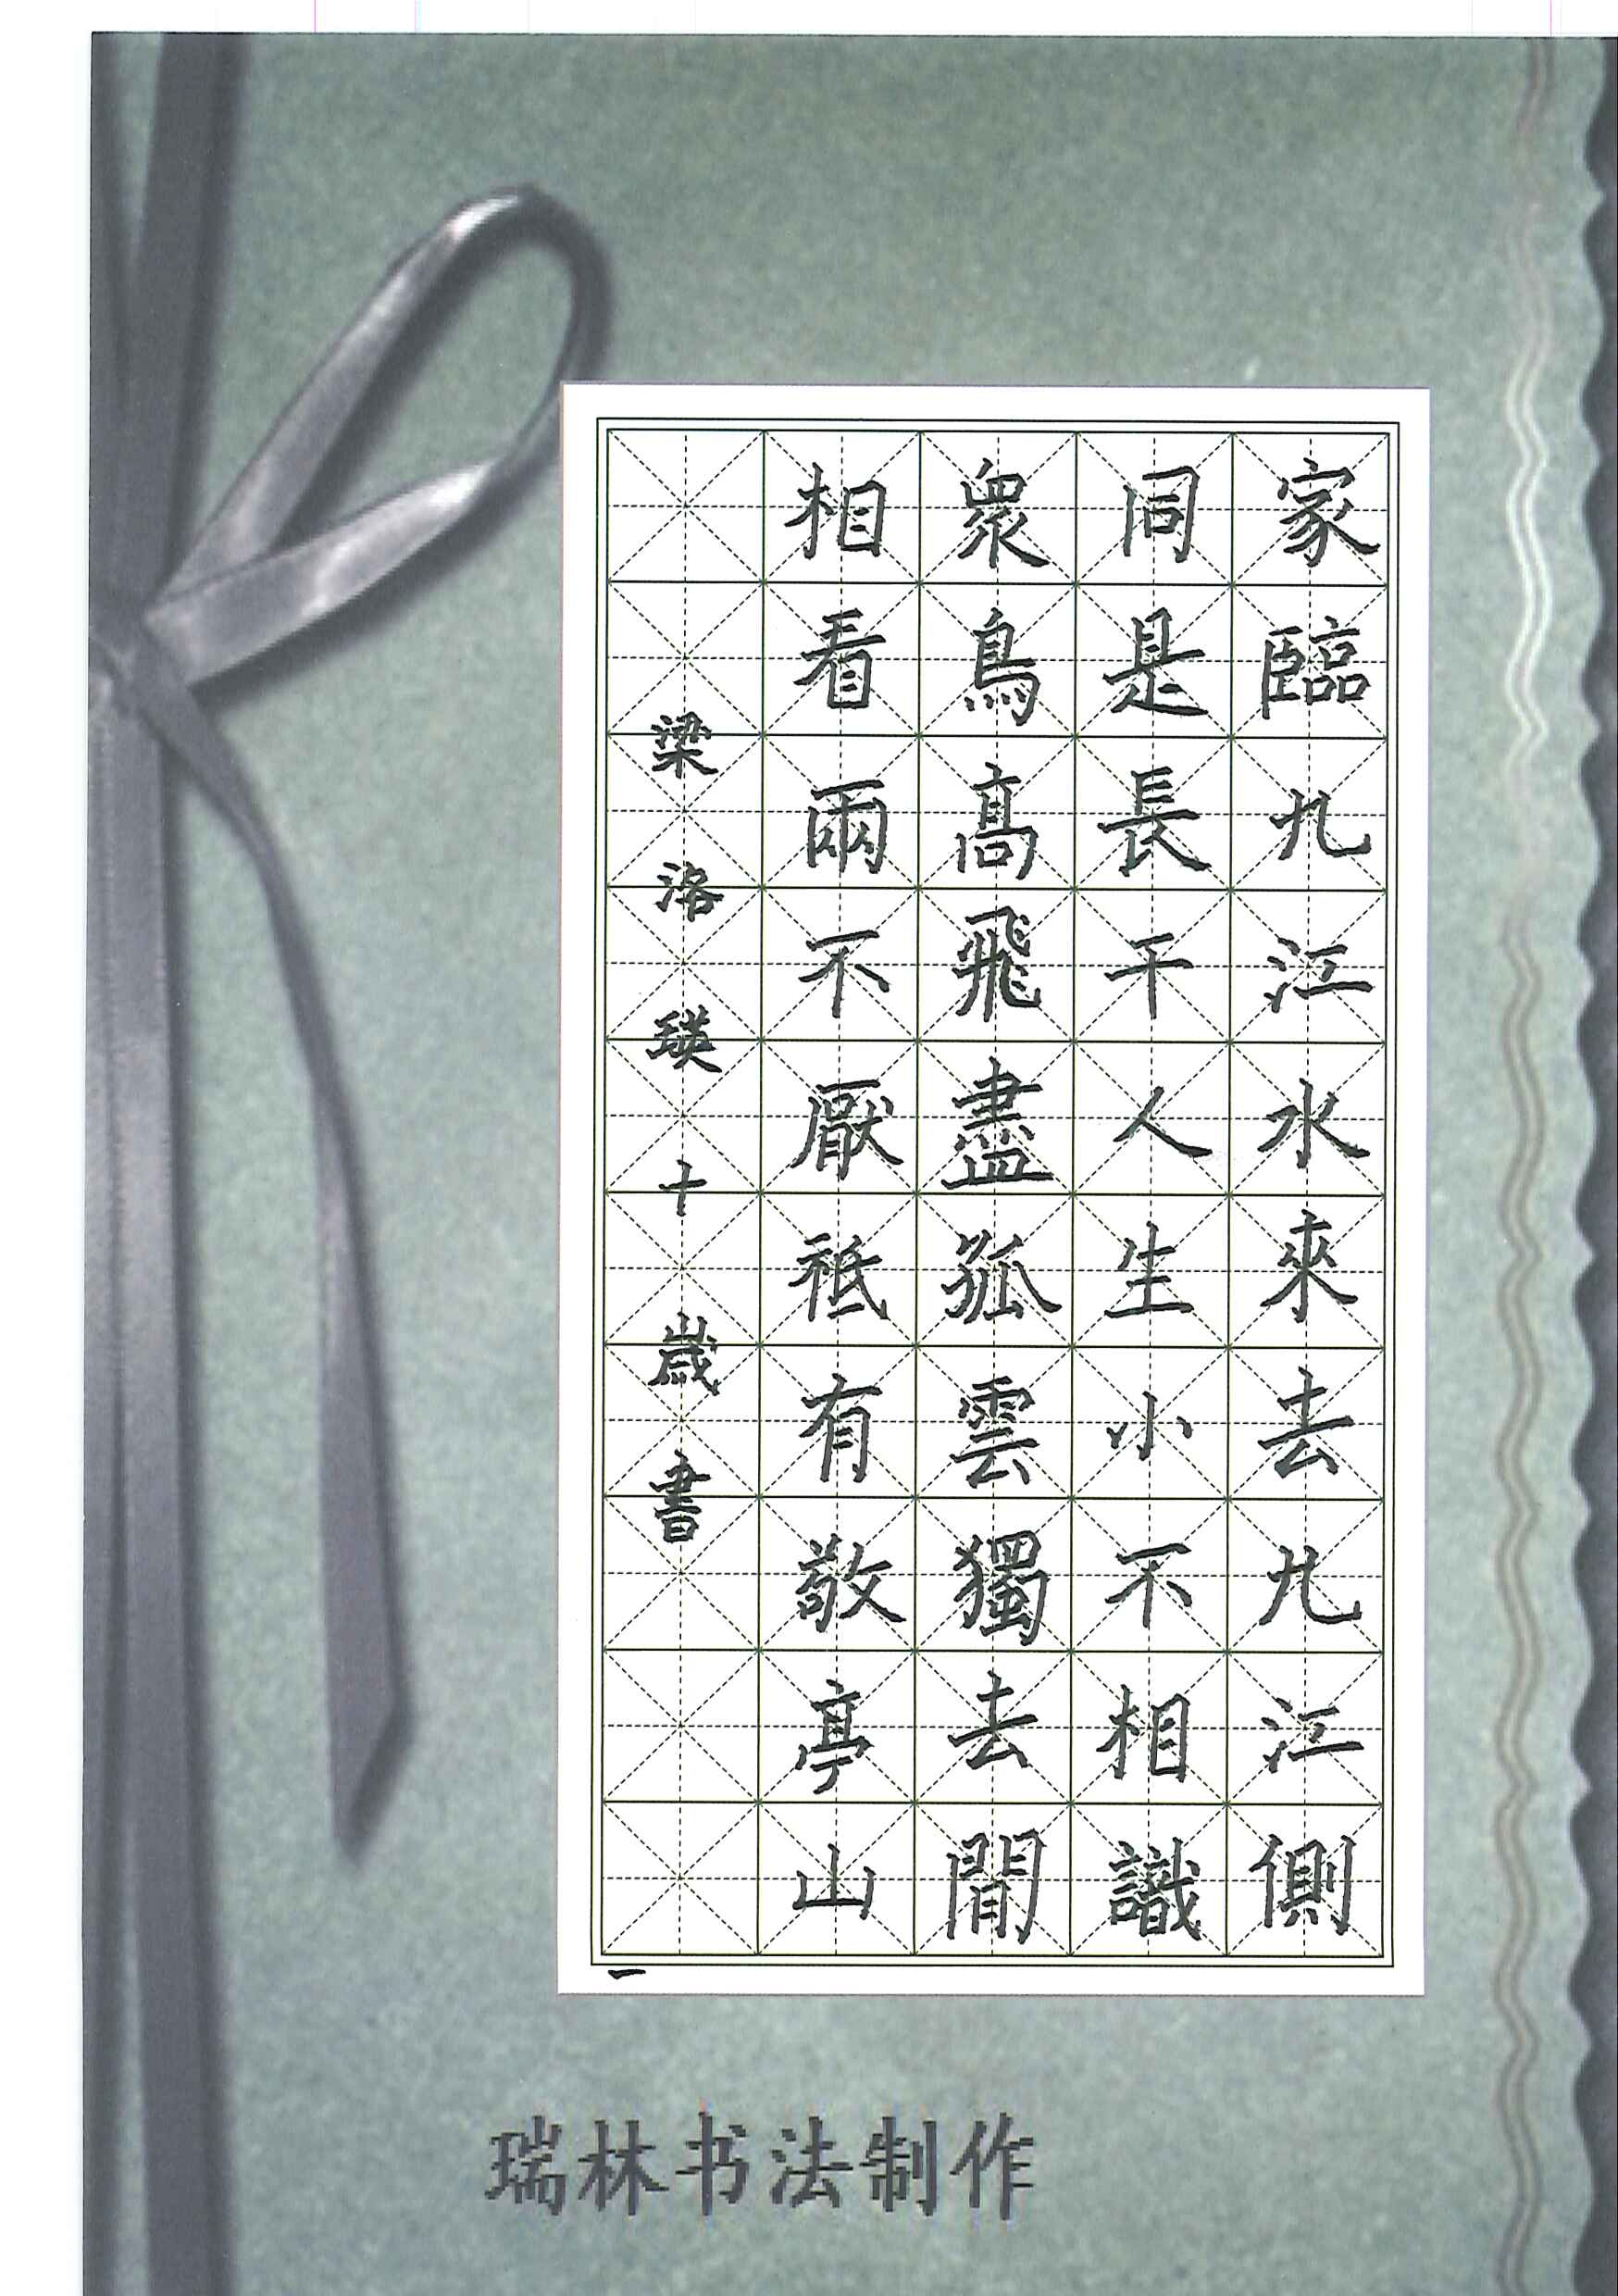 家臨九江水來去九江側
同是長干人生小不相識
眾鳥高飛盡孤雲獨去閒
相看兩不厭祗有敬亭山
梁洛瑛十歲書
瑞林书法制作